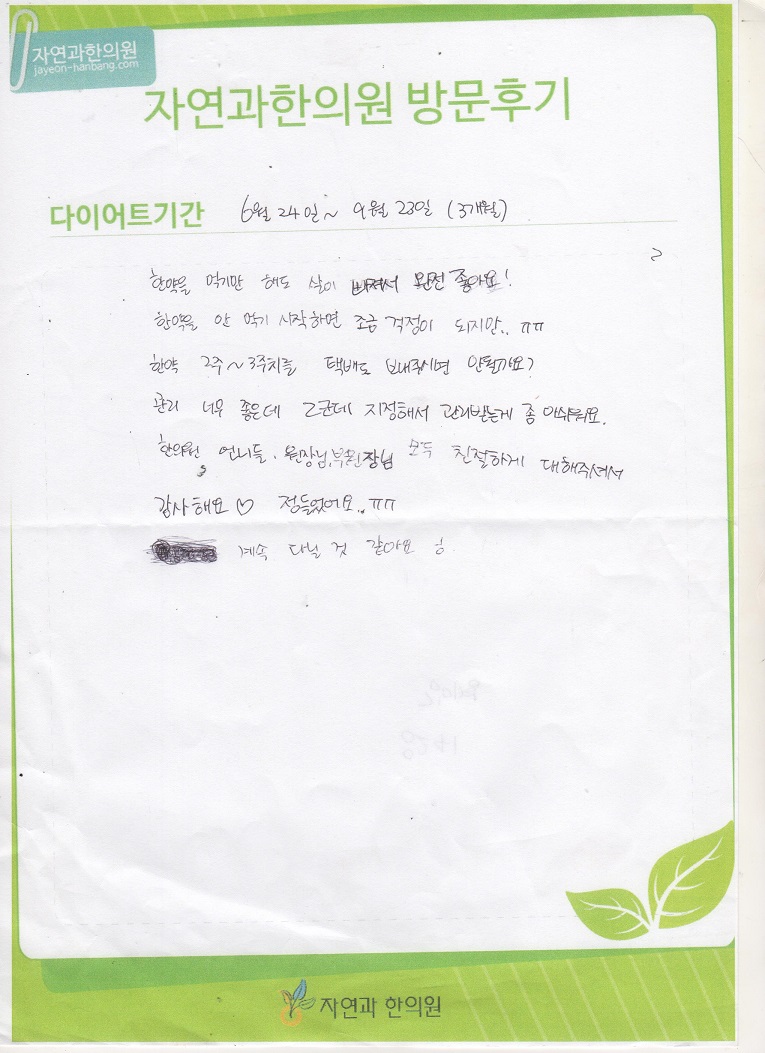 자연과한의원
jayeon-hanbang.com
자연과한의원 방문후기
다이어트기간 6월 24일~ 9월 23일 (3개월)
한약을 먹기만 해도 살이 빠져서 완전 좋아요!
한약을 안 먹기 시작하면 조금 걱정이 되지만.. ㅠㅠ
한약 2주~3주치를 택배로 보내주시면 안될까요?
관리 너무 좋은데 2군데 지정해서 관리받는게 좀 아쉬워요.
한의원 언니들, 원장님, 부원장님 모두 친절하게 대해주셔서
감사해요♡ 정들었어요.. ㅠㅠ
계속 다닐 것 같아요
자연과 한의원